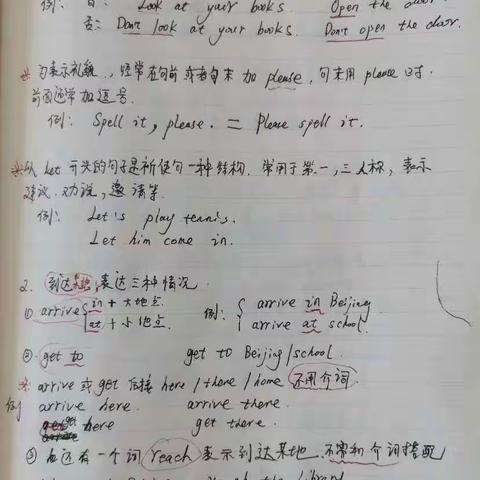 例: 肯: Look at your books. Open the door.
否: Don't look at your books. Don't open the door.
※ 为表示礼貌, 经常在句前或者句末加 please, 句末用 please 时.
前面通常加逗号.
例: Spell it, please. = Please spell it.
※ 以 let 开头的句子是祈使句一种结构. 常用于第一,三人称, 表示
建议. 劝说, 邀请等.
例: Let's play tennis.
Let him come in.
2. 到达 表达三种情况.
① arrive { in + 大地点 例: { arrive in Beijing
at + 小地点. arrive at school.
② get to get to Beijing/school.
※ arrive 或 get 后接 here / there / home 不用介词
例 arrive here. arrive there.
get here get there.
③ 还有一个词 reach 表示到达某地. 不需和介词搭配